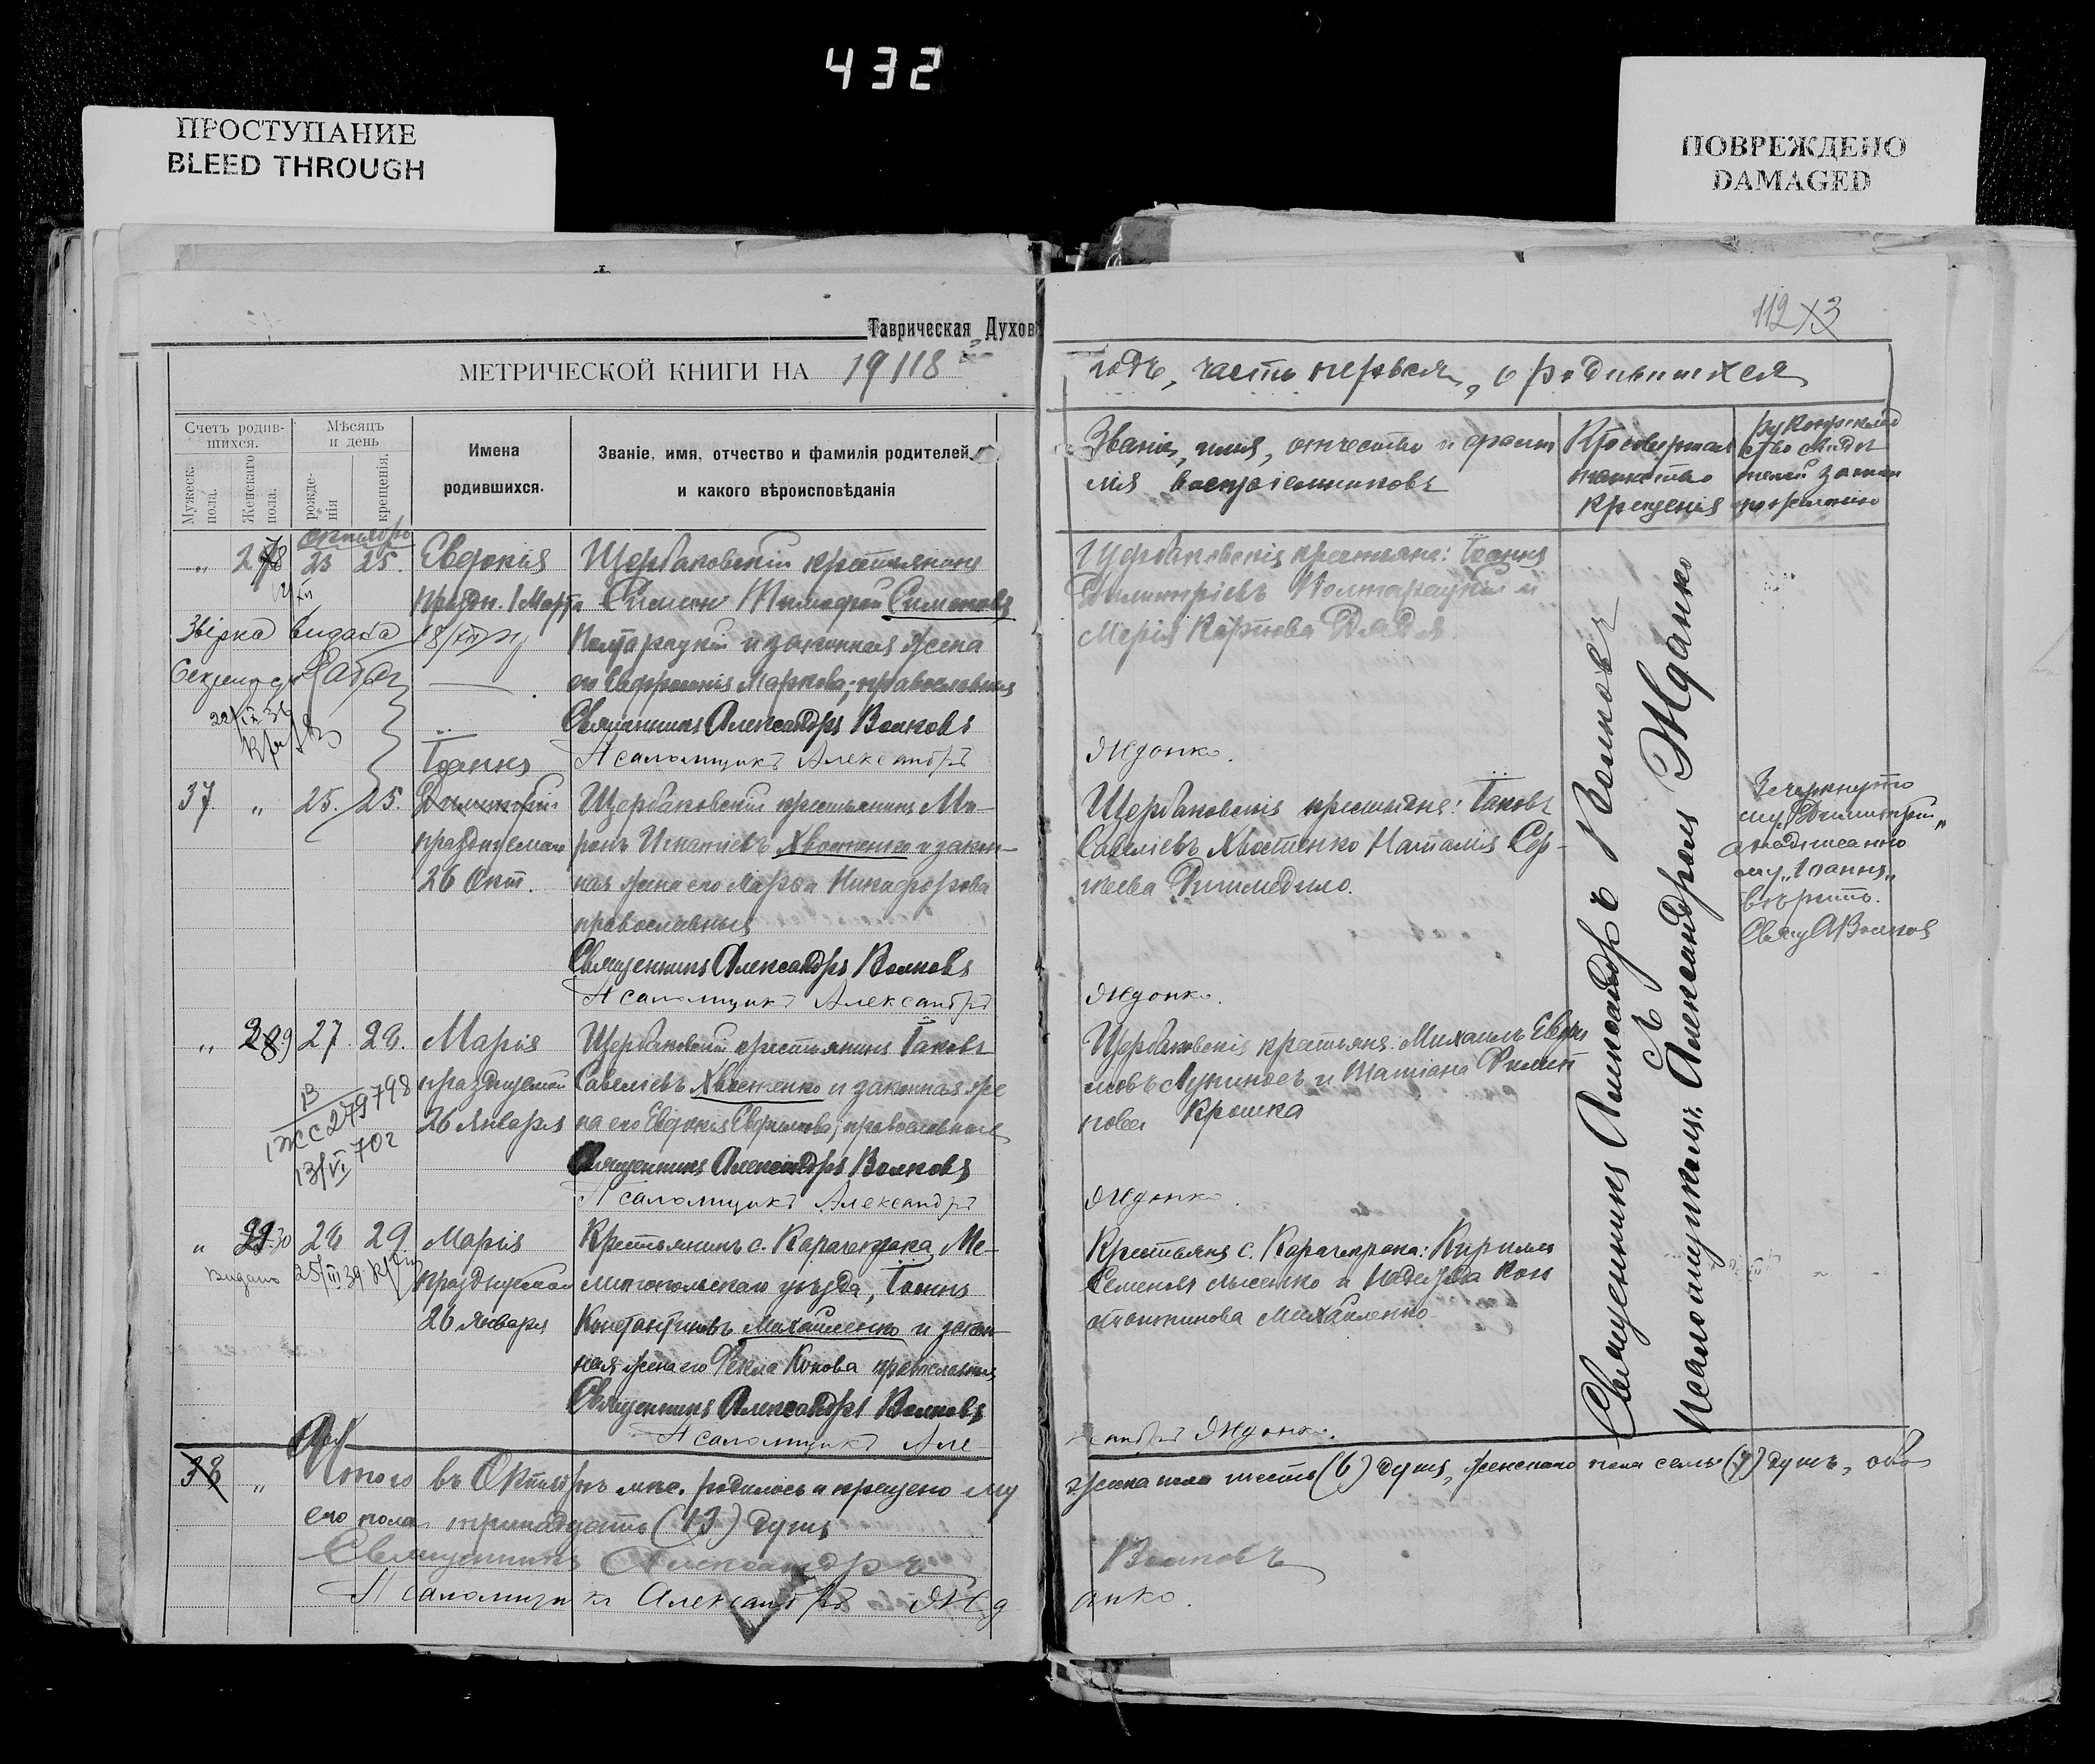 432
ПРОСТУПАНИЕ
BLEED THROUGH
ПОВРЕЖДЕНО
DAMAGED
Таврическая Духов
112 Х3
МЕТРИЧЕСКОЙ КНИГИ НА 19118
годъ, часть первая, о родившихся
Счетъ родив-
шихся.
Мужеск.
пола.
Женскаго
пола.
Мѣсяцъ
и день
рожде-
нія
крещенія.
Имена
родившихся.
Званіе, имя, отчество и фамилія родителей,
и какого вѣроисповѣданія
Званіе, имя, отчество и фами
лія воспріемниковъ
Кто совершал
таинство
крещенія
рукоприклад
ство свидѣ
телей записи
по желанію
октябрь
„ 28 23 25. Евдокія
праздн. 1 Марта
Щербаковскій крестьянинъ
Симеон Тимофей Симеоновъ
Полтарацкій и законная жена
его Евфросинія Маркова; православныя
Священникъ Александръ Волковъ
Псаломщикъ Александръ
Звірка видана 18/XII
22/IX 36
Щербаковскія крестьяне: Іоаннъ
Димитріевъ Полтарацкій и
Марія Карпова Дядя
Жданко.
37 „ 25. 25. Іоаннъ
Димитрій
празднуемаго
26 Окт.
Щербаковскій крестьянинъ Ми-
ронъ Игнатіевъ Хвостенко и закон-
ная жена его Марѳа Никифорова
православныя
Священникъ Александръ Волковъ
Псаломщикъ Александръ
Щербаковскія крестьяне: Іаковъ
Савеліевъ Хвостенко Наталія Сер-
гѣева
Жданко.
Зачеркнутому „Димитрій“
а надписанно
му „Іоаннъ“
вѣрить.
Свящ АВолков
„ 29 27 28. Марія
празднуемой
26 Января
Щербаковскій крестьянинъ Іаковъ
Савеліевъ Хвостенко и законная же
на его Евдокія Ефимова; православные
Священникъ Александръ Волковъ
Псаломщикъ Александръ
В
ІЖС 279798
13/VI 70г
Щербаковскія крестьяне: Михаилъ Евфи
мовъ и Татіана Филип
пова Крошка
Жданко.
„ 30 28 29. Марія
празднуемая
26 января
Видано 25/III 39
Крестьянинъ с. Карачекрака, Ме-
литопольскаго уѣзда, Іоаннъ
Константиновъ Михайленко и закон-
ная жена его Фекла Конова православныя
Священникъ Александръ Волковъ
Псаломщикъ Але
Крестьяне с. Карачекрака: Кириллъ
Семеновъ Лысенко и Надежда Кон
стантинова Михайленко
ксандръ Жданко.
Священникъ Александръ Волковъ
Псаломщикомъ Александромъ Жданко
38 „ Итого въ Октябрѣ мѣс. родилось и крещено му
жеска пола шесть (6) душъ, женскаго пола семь (7) душъ, обо
его пола тринадцать (13) душъ
Священникъ Александръ Волковъ
Псаломщикъ Александръ Жданко.